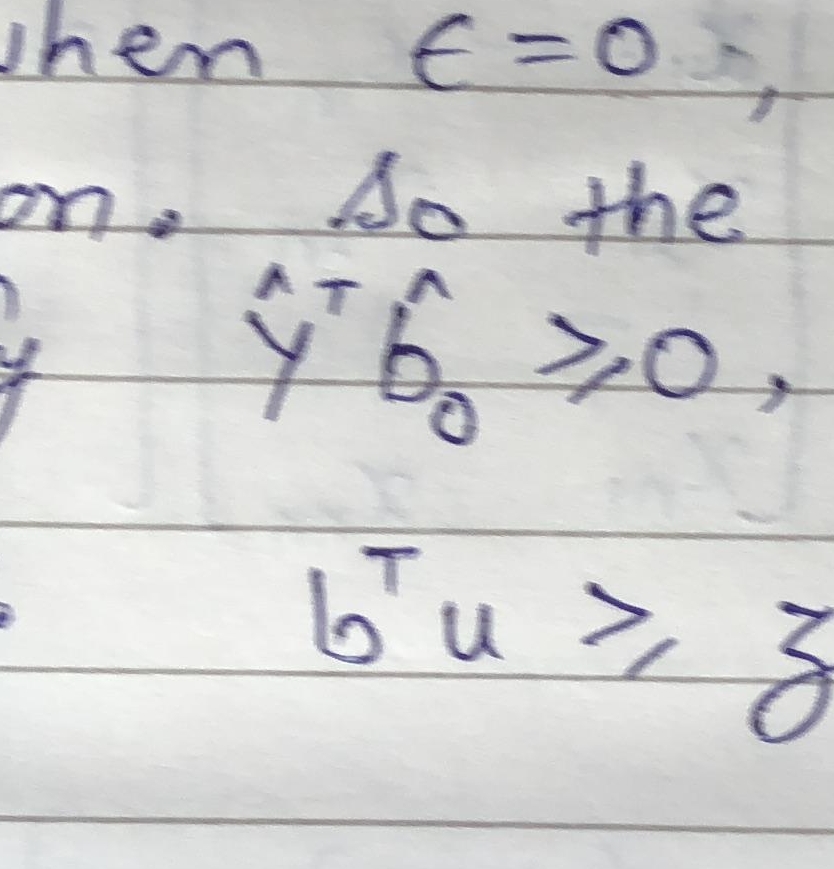 when ϵ = 0,
on. So the
y ŷᵀ b̂₀ ⩾ 0,
. bᵀ u ⩾ z